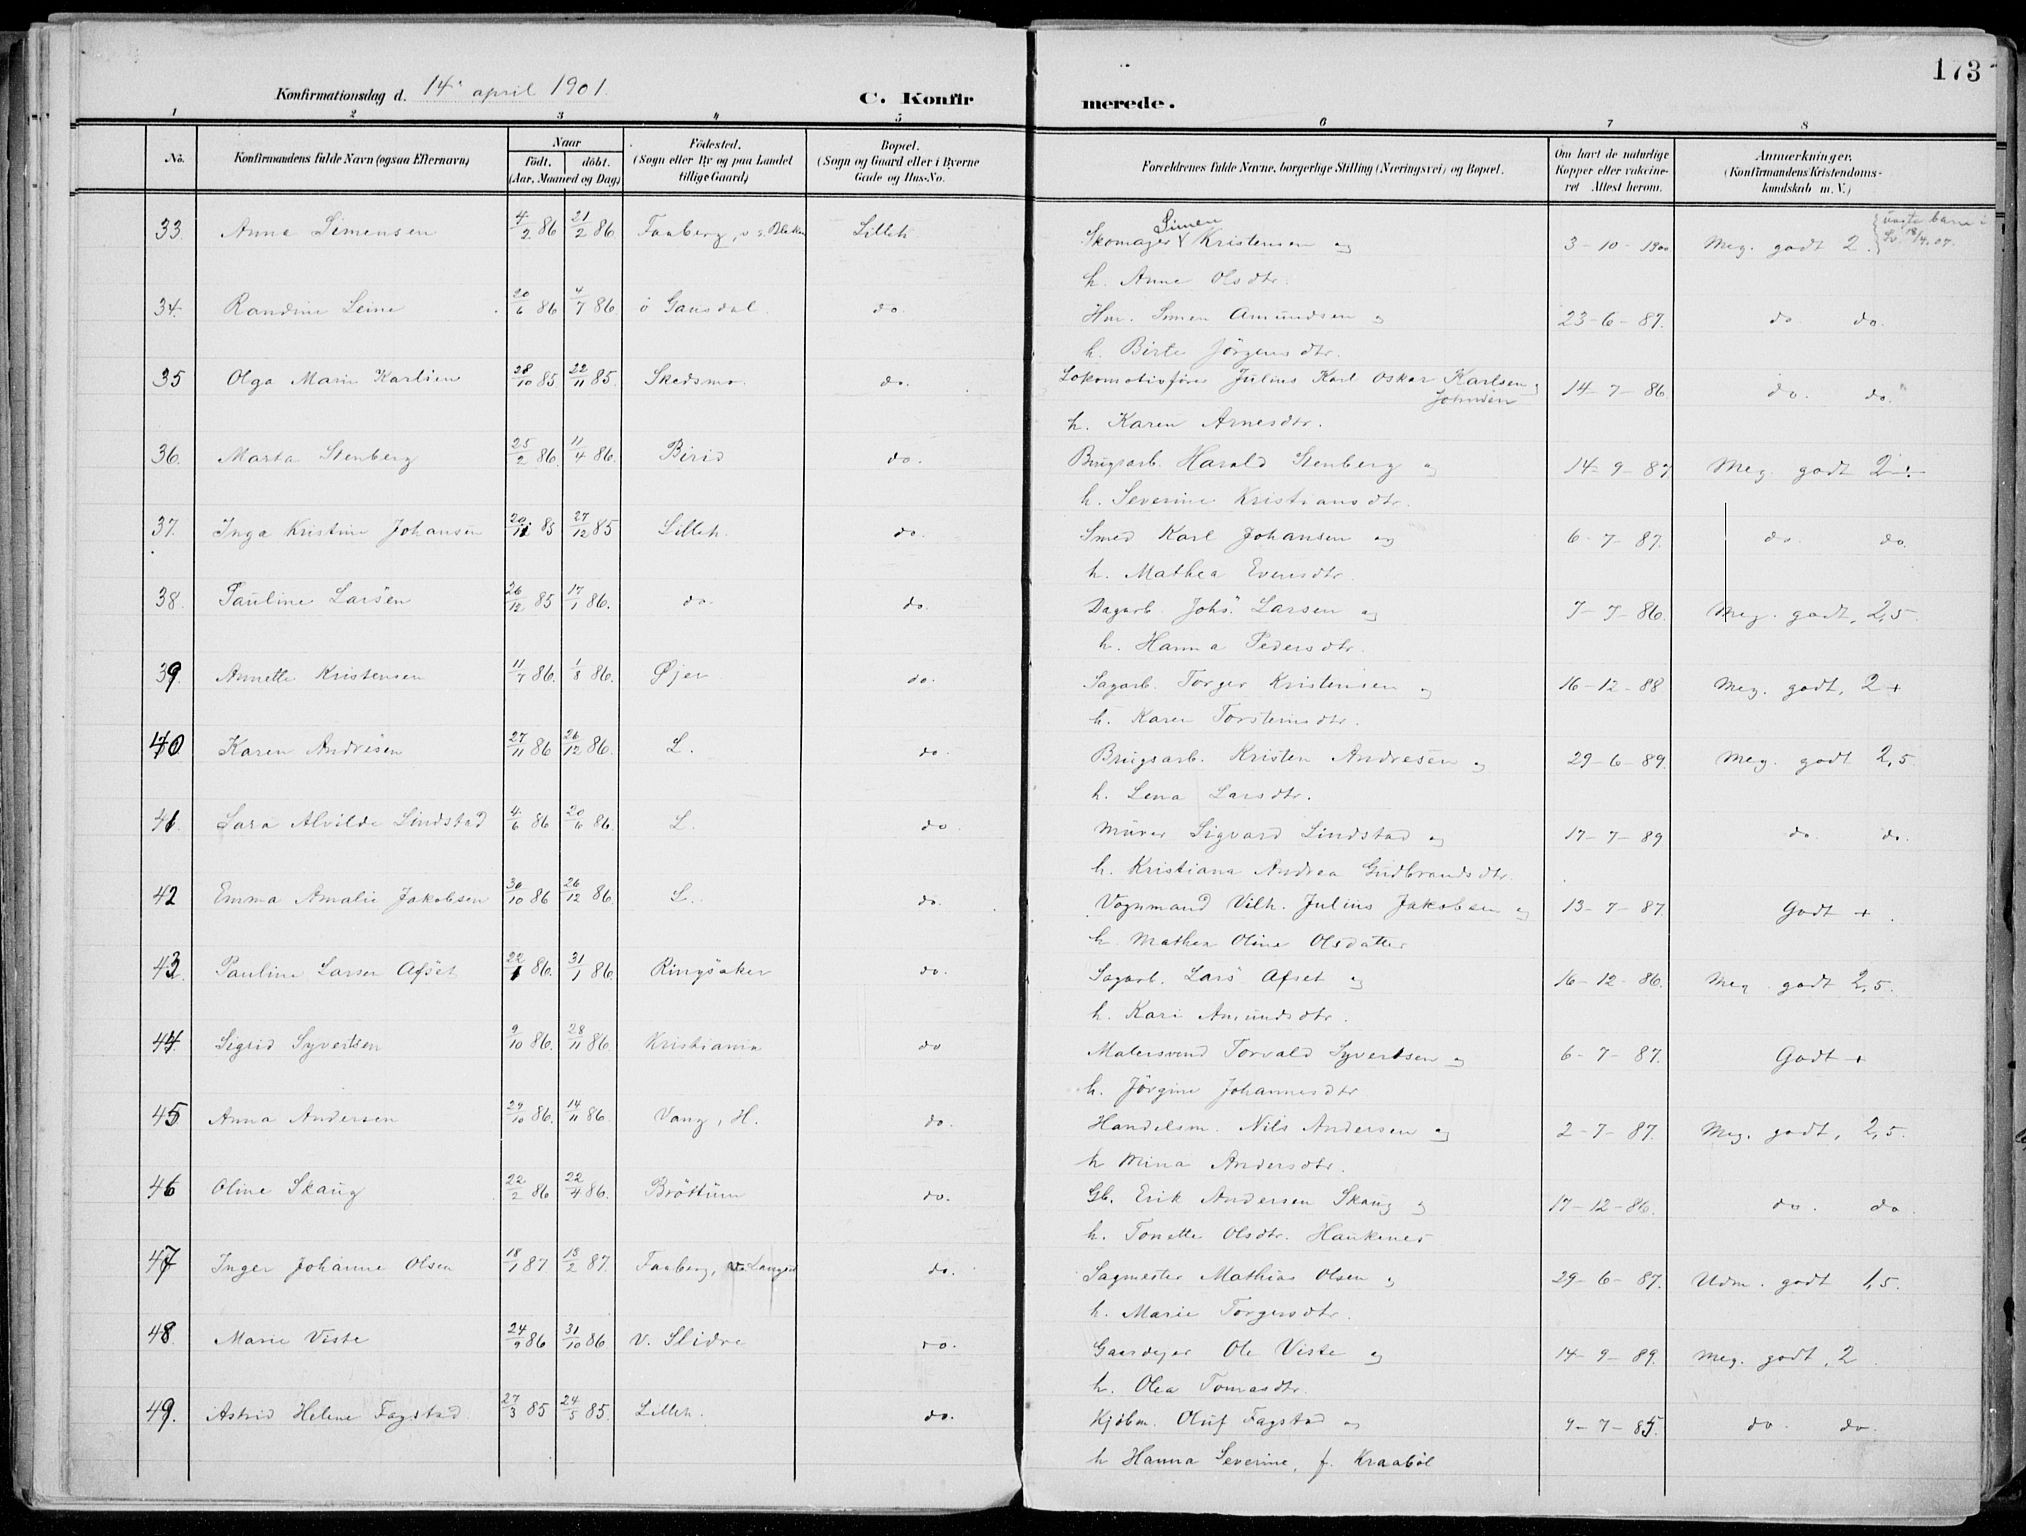 173
Konfirmationsdag d. 14 april 1901.
C. Konfir merede.
1 2 3 4 5 6 7 8
No. Konfirmandens fulde Navn (ogsaa Efternavn) Naar födt. döbt. (Aar, Maaned og Dag) Födested. (Sogn eller By og paa Landet tillige Gaard) Bopæl. (Sogn og Gaard eller i Byerne Gade og Hus-No. Forældrenes fulde Navne, borgerlige Stilling (Næringsvei) og Bopæl. Om havt de naturlige Kopper eller vakcineret. Attest herom. Anmærkninger. (Konfirmandens Kristendomskundskab m. V.)
33. Anna Simensen 4/2 86 21/2 86 Faaberg, Lilleh. Skomager Simen Kristensen og 3-10-1900 Meg. godt 2.
h. Anne Olsdtr.
34. Randine Leine 20/6 86 4/7 86 ö Gausdal. do. Hm. Simen Amundsen og 23-6-87. do do.
h. Birte Jörgensdtr.
35 Olga Marie Karlsen 28/10 85 22/11 85. Skedsmo. do. Lokomotivförer Julius Karl Oskar Karlsen 14-7-86 do. do.
h. Karen Arnesdtr.
36. Marta Stenberg 25/2 86. 11/4 86. Birid do. Brugsarb. Harald Stenberg og 14-9-87 Meg. godt 2÷
h. Severine Kristiansdtr.
37. Inga Kristine Johansen 20/11 85 27/12 85 Lilleh. do. Smed Karl Johansen og 6-7-87. do. do.
h. Mathea Evensdtr.
38. Pauline Larsen 26/12 85 17/1 86. do. do. Dagarb. Johs. Larsen og 7-7-86. Meg. godt, 2,5
h. Hanna Pedersdtr.
39 Annette Kristensen 11/7 86. 1/8 86. Øjer do. Sagarb. Torger Kristensen og 16-12-88 Meg. godt, 2+
h. Karen Torsteinsdtr.
40 Karen Andresen 27/11 86 26/12 86. L. do Brugsarb. Kristen Andresen og 29-6-89. Meg. godt 2,5
h. Lena Larsdtr.
41. Sara Alvilde Lindstad 4/6 86 20/6 86. L. do Murer Sigvard Lindstad og 17-7-89 do. do.
h. Kristiana Andrea Gudbrandsdtr.
42 Emma Amalie Jakobsen 30/10 86 26/12 86. L. do. Vognmand Vilh. Julius Jakobsen og 13-7-87 Godt +
h. Mathea Oline Olsdatter
43 Pauline Larsen Afset 22/1 86. 31/1 86. Ringsaker do. Sagarb. Lars Afset og 16-12-86. Meg. godt 2,5.
h. Kari Amundsdtr.
44. Sigrid Syvertsen 9/10 86. 28/11 86. Kristiania do Malersvend Torvald Syvertsen og 6-7-87. Godt +
h. Jörgine Johannesdtr
45 Anna Andersen 29/10 86. 14/11 86 Vang, H. do. Handelsm. Nils Andersen og 2-7-87. Meg. godt, 2,5.
h Mina Andersdtr.
46 Oline Skaug 22/2 86 22/4 86. Bröttum do. Gb. Erik Andersen Skaug og 17-12-86. do. do
h. Tonette Olsdtr. Haukenes
47 Inger Johanne Olsen 18/1 87 13/2 87. Faaberg, do. Sagmester Mathias Olsen og 29-6-87. Udm. godt 1,5.
h. Marie Torgersdtr.
48. Marie Viste 24/9 86 31/10 86 V. Slidre do. Gaardejer Ole Viste og 14-9-89. Meg. godt, 2
h. Olea Tomasdtr.
49. Astrid Helene Fagstad. 27/3 85 24/5 85. Lilleh. do. Kjöbm. Oluf Fagstad og 9-7-85. do. do.
h Hanna Severine, f. Kraaböl